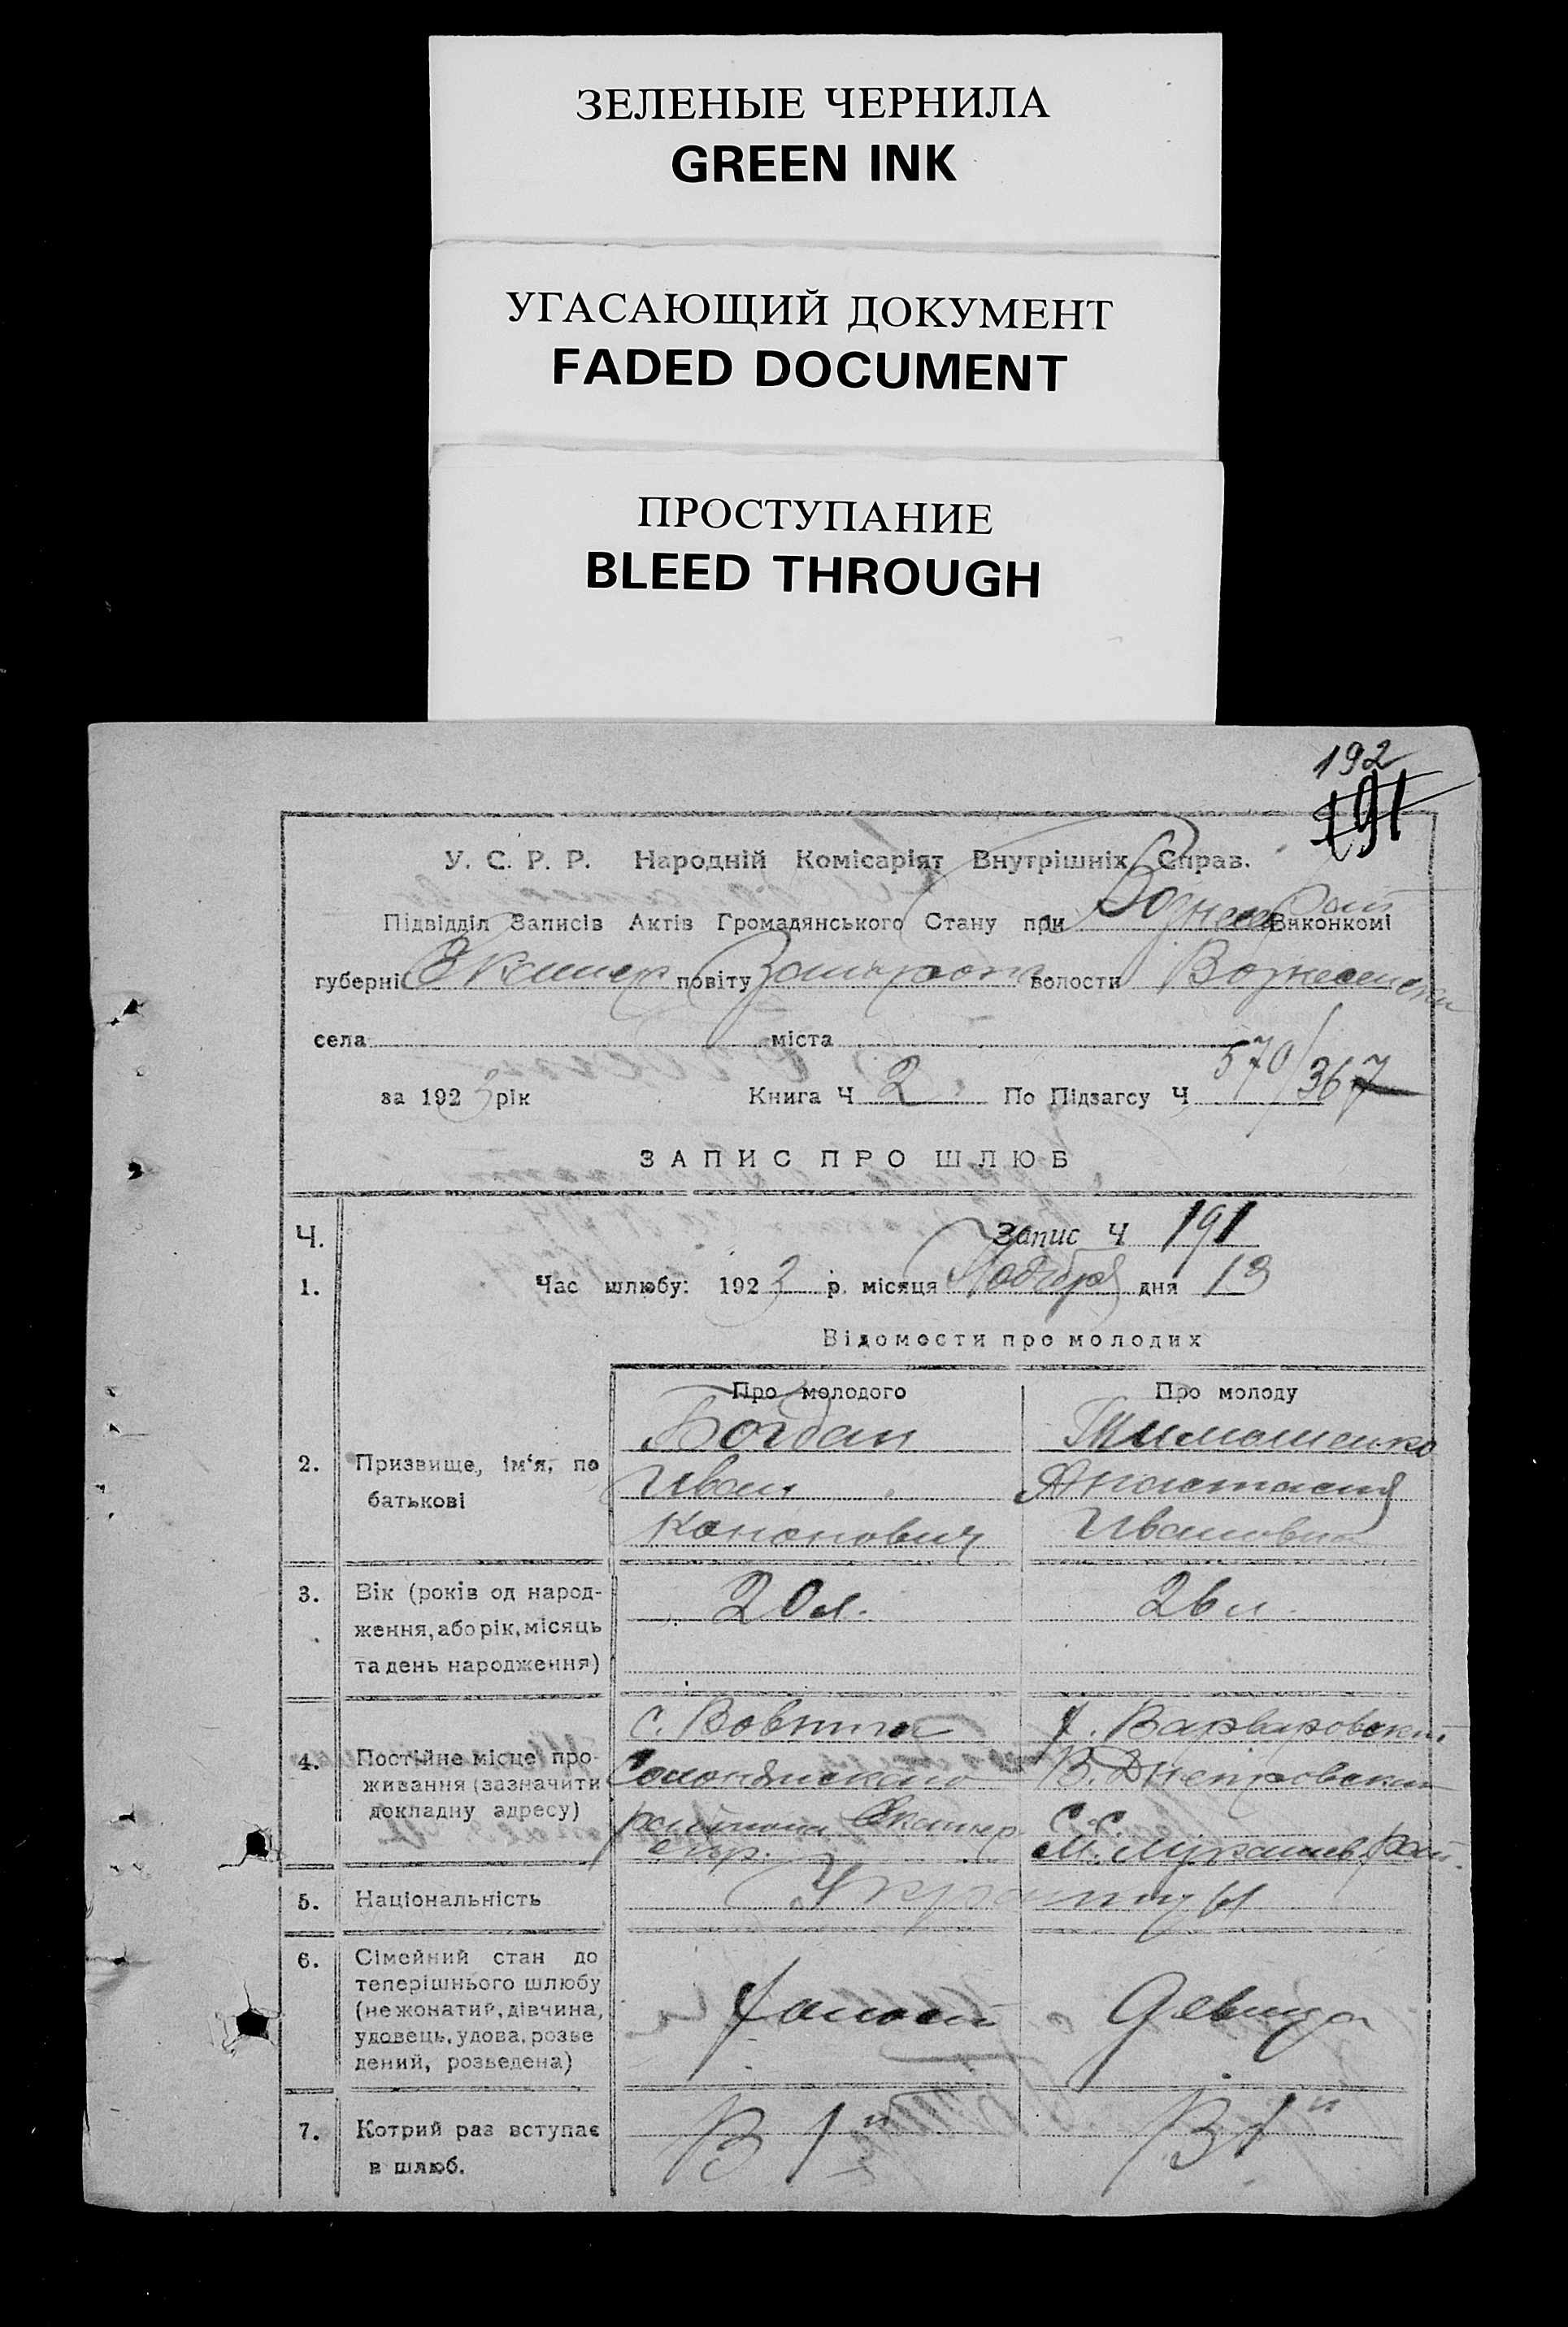 ЗЕЛЕНЫЕ ЧЕРНИЛА
GREEN INK
УГАСАЮЩИЙ ДОКУМЕНТ
FADED DOCUMENT
ПРОСТУПАНИЕ
BLEED THROUGH
192
191
У. С. Р. Р. Народній Комісаріят Внутрішніх Справ.
Підвідділ Записів Актів Громадянського Стану при Виконкомі
губерні Екатер повіту волости
села міста
за 1923 рік Книга Ч 2 По Підзагсу Ч 570/367
ЗАПИС ПРО ШЛЮБ
Ч. Запис Ч 191
1. Час шлюбу: 1923 р. місяця Ноября дня 13
Відомости про молодих
Про молодого Про молоду
Богдан Тимошенко
2. Призвище, ім‘я, по Иван Анастасия
батькові Кононович Ивановна
3. Вік (років од народ- 20 л. 26 л.
ження, або рік, місяць
та день народження)
с. Вовниги х. Варваровский
4. Постійне місце про- В. Днепровский
живання (зазначити
докладну адресу) района Екатер С.С.
губ.
5. Національність Украинцы
6. Сімейний стан до
теперішнього шлюбу
(нежонатий, дівчина, Холост Девица
удовець, удова, розве
дений, розведена)
7. Котрий раз вступає В 1й В 1й
в шлюб.